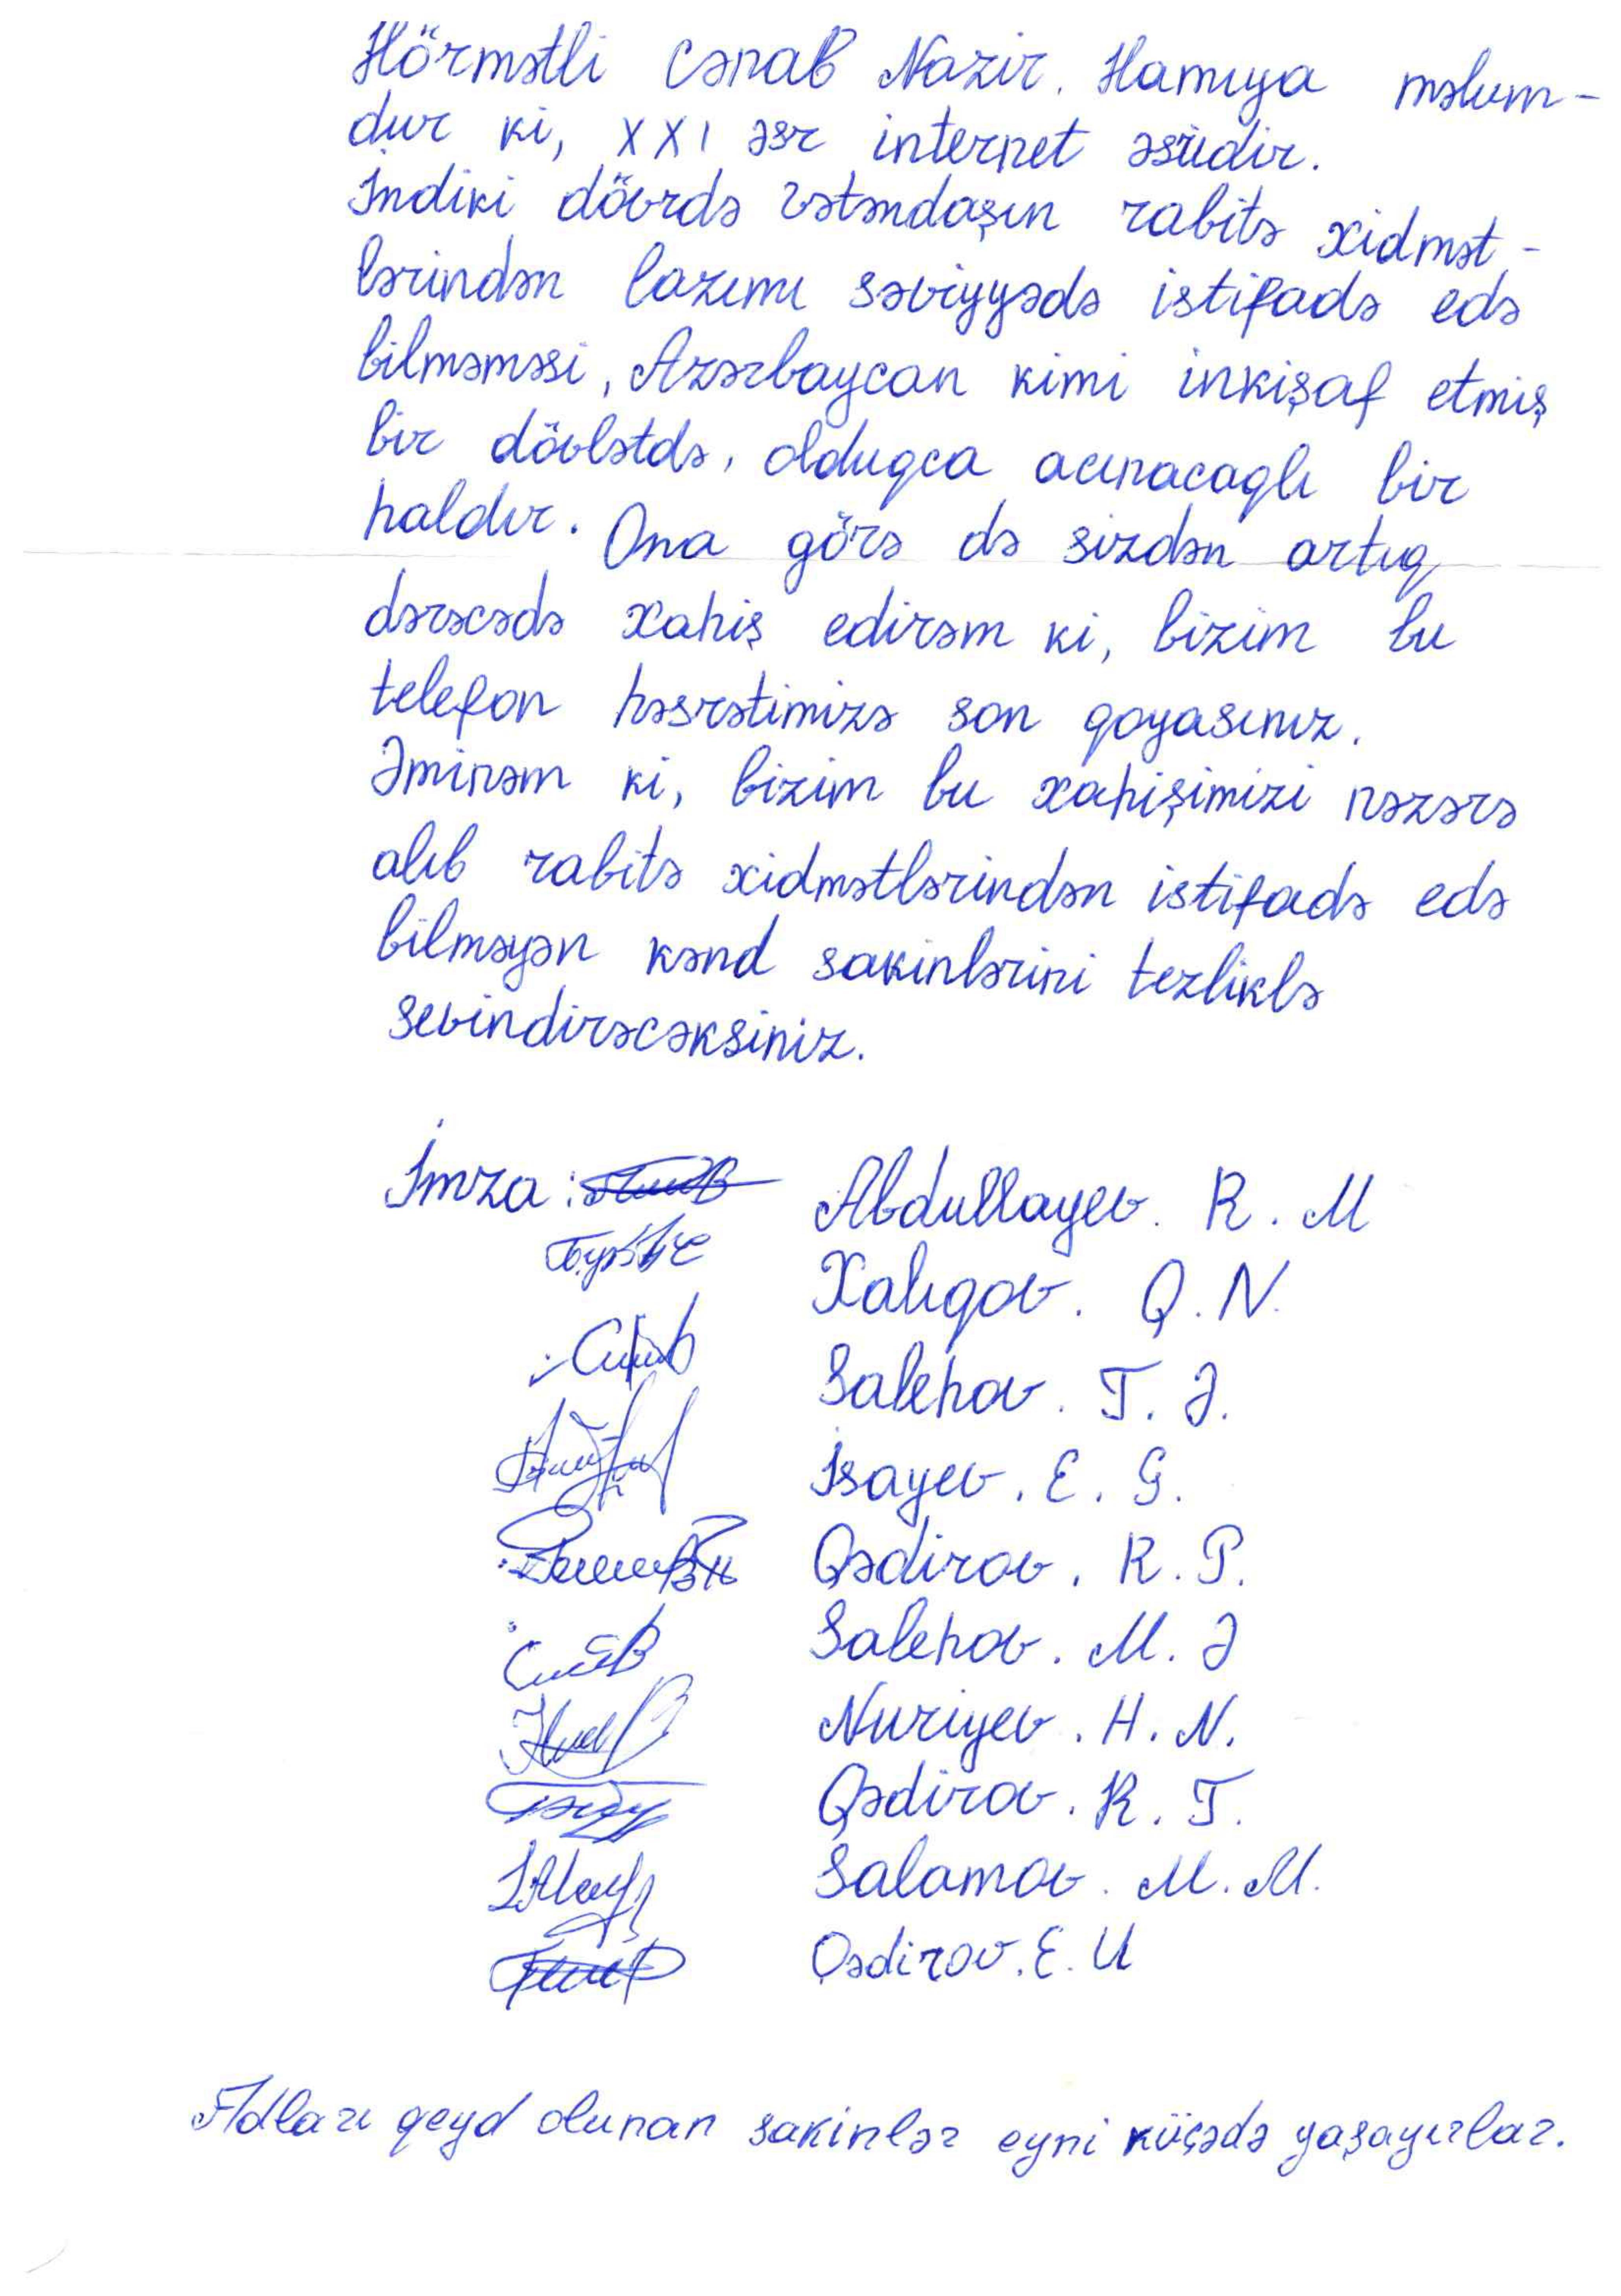 Hörmətli Cənab Nazir. Hamıya məlum-
dur ki, XXI əsr internet əsridir.
İndiki dövrdə vətəndaşın rabitə xidmət-
lərindən lazımı səviyyədə istifadə edə
bilməməsi, Azərbaycan kimi inkişaf etmiş
bir dövlətdə, olduqca acınacaqlı bir
haldır. Ona görə də sizdən artıq
dərəcədə xahiş edirəm ki, bizim bu
telefon həsrətimizə son qoyasınız.
Əminəm ki, bizim bu xahişimizi nəzərə
alıb rabitə xidmətlərindən istifadə edə
bilməyən kənd sakinlərini tezliklə
sevindirəcəksiniz.
İmza: Abdullayev. R. M
Xalıqov. Q. N.
Salehov. T. Ə.
İsayev. E. G.
Qədirov. R. P.
Salehov. M. Ə
Nuriyev. H. N.
Qədirov. R. T.
Salamov. M. M.
Qədirov. E. U
Adları qeyd olunan sakinlər eyni küçədə yaşayırlar.